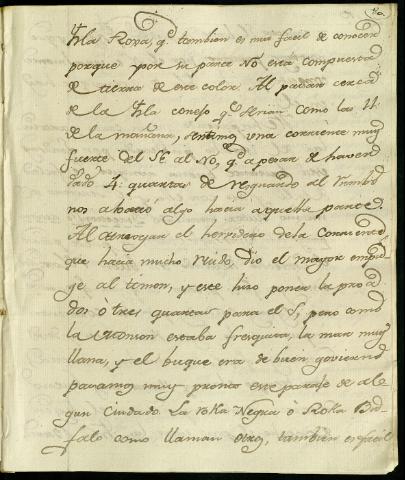 Ysla Roxa, q.e tambien es mui facil de conocer
porque por su parte NO esta compuesta
de tierra de este color. Al pasar cerca
de la Ysla conejo q.e serian como las 11
de la mañana, sentimos una corriente muy
fuerte del SE al NO, q.e a pesar de haver
dado 4. quartas de resguardo al rumbo
nos abatió algo hacia aquella parte.
Al atravesar el herbidero de la Corriente,
que hacia mucho ruido, dio el mayor empu
je al timon, y este hizo poner la proa
dos ò tres quartas para el S, pero como
la estaba fresquita, la mar muy
llana, y el buque era de buen govierno
pasamos muy pronto este paraje de al
gun cuidado. La roka Negra ò Roka Bu
falo como llaman otros, tambien es facil